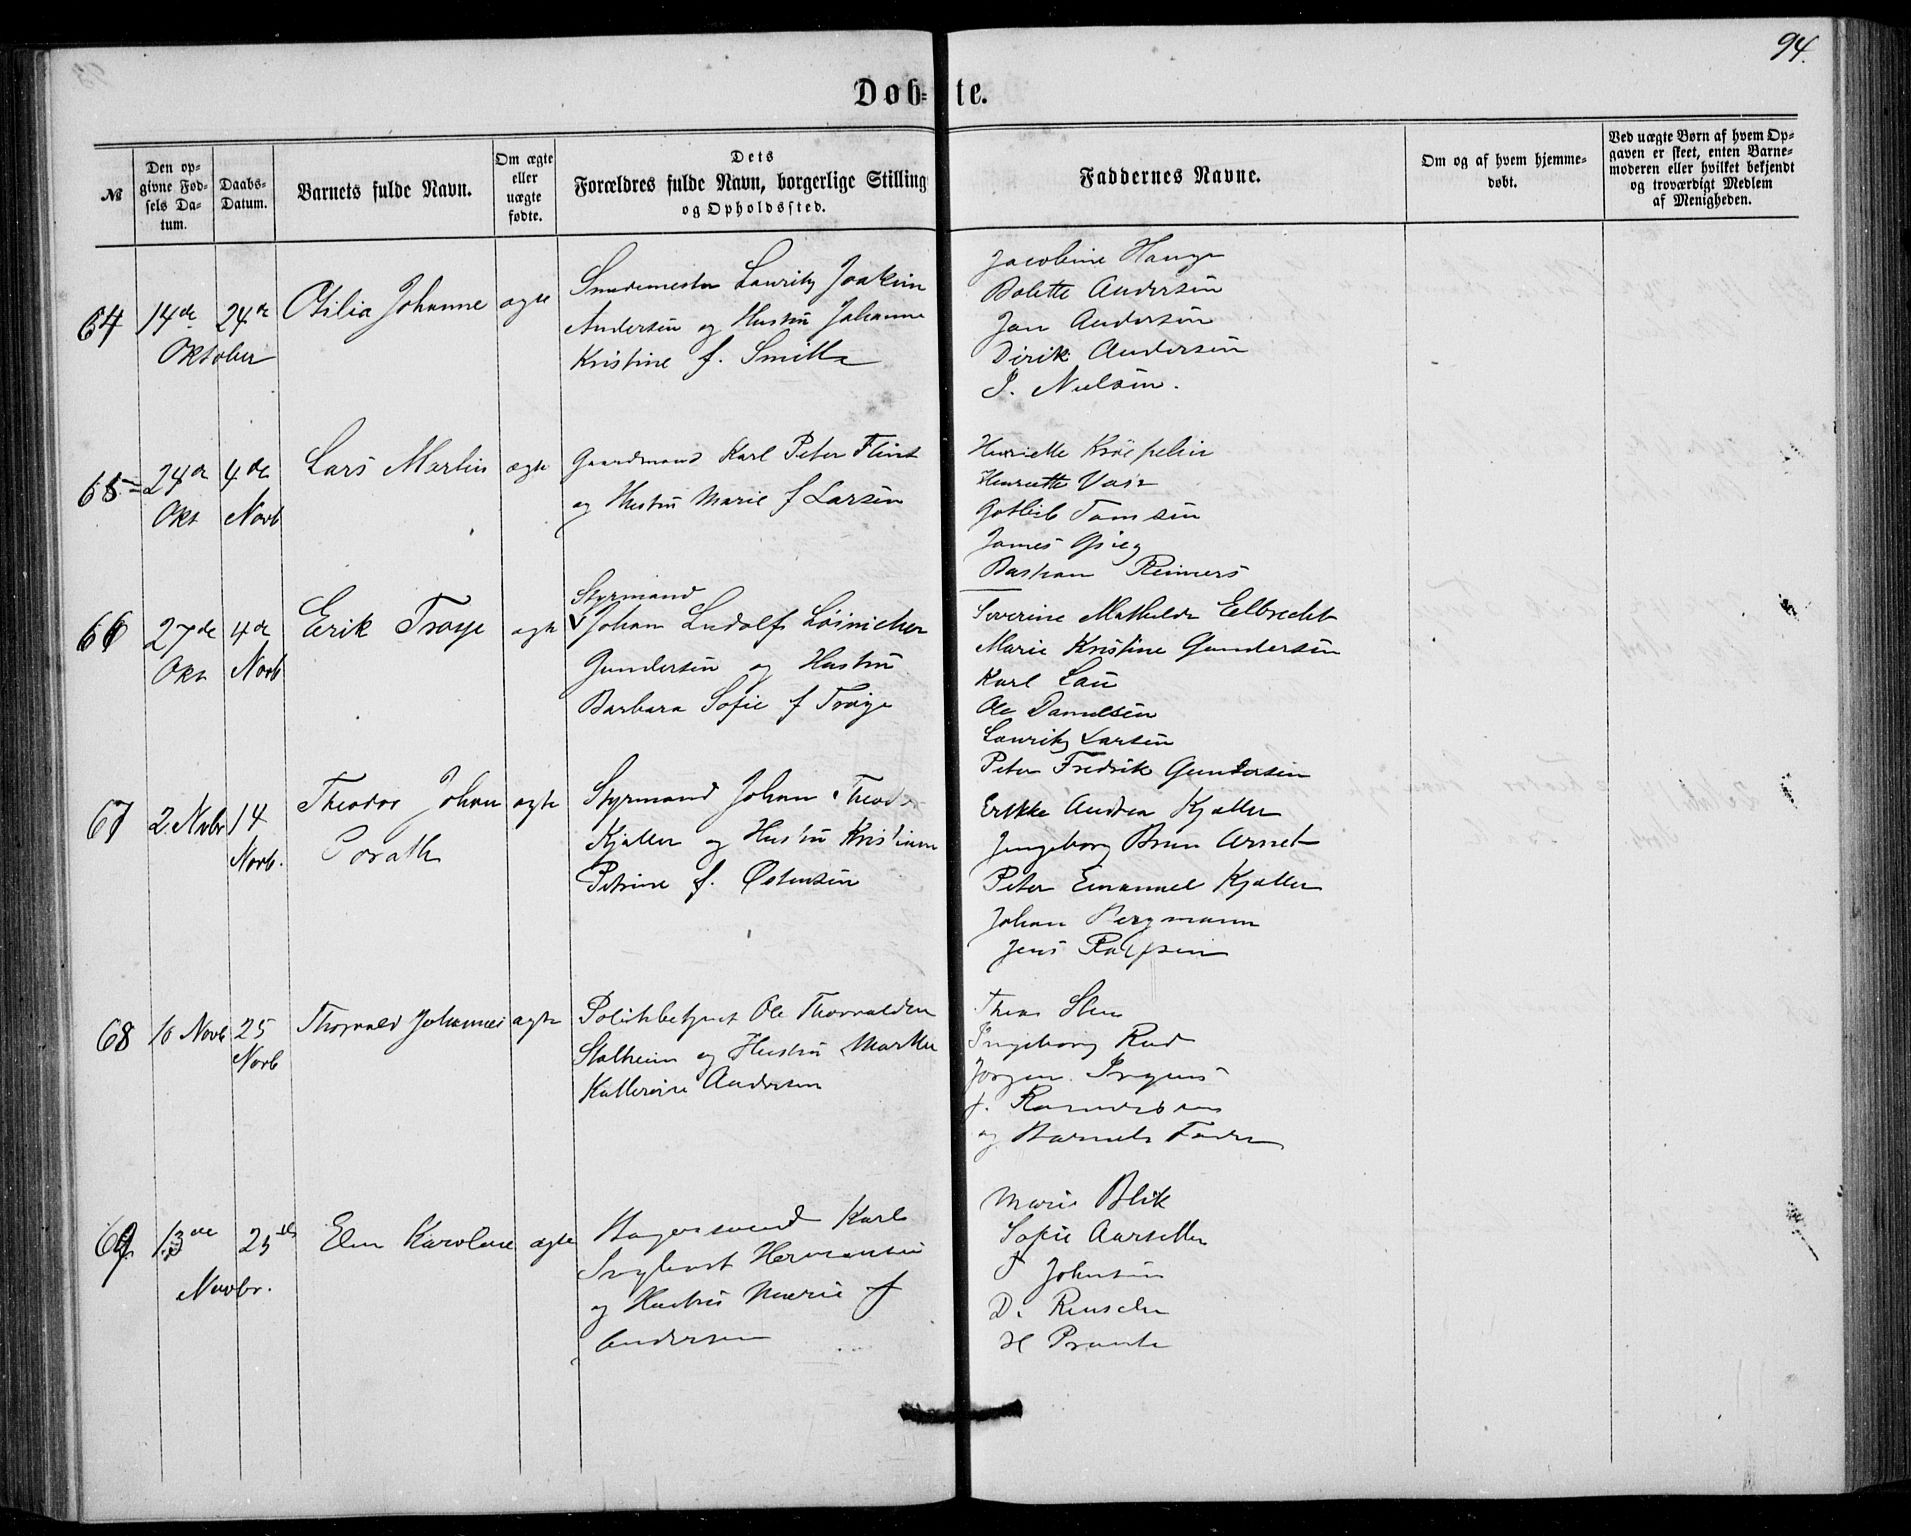 94.
Døb= te.
№
Den op-
givne Fød-
sels Da-
tum.
Daabs-
Datum.
Barnets fulde Navn.
Om ægte
eller
uægte
fødte.
Dets
Forældres fulde Navn, borgerlige Stilling
og Opholdssted.
Faddernes Navne.
Om og af hvem hjemme-
døbt.
Ved uægte Børn af hvem Op-
gaven er skeet, enten Barne-
moderen eller hvilket bekjendt
og troværdigt Medlem
af Menigheden.
64 14de 24de
Oktober
Otilia Johanne
ægte
Smedemester Lauritz Joakim
Andersen og Hustru Johanne
Kristine f. Smith
Jacobine
Bolette Andersen
Jan Andersen
Dirik Andersen
Nielsen.
65 24de 4de
Okt Novb
Lars Martin
ægte
Gaardmand Karl Peter Flint
og Hustru Marie f Larsen
Henriette Krøepelin
Henriette
Gotlieb Tomsen
James Grieg
Bastian Reimers
66 27de 4de
Okt Novb
Erik Troye
ægte
Styrmand
Johan Ludolf
Gundersen og Hustru
Barbara Sofie f Troye
Severine Mathilde Elbrecht
Marie Kristine Gundersen
Karl Lau
Ole Danielsen
Lauritz Larsen
Peter Fredrik Gundersen
67 2. Novbr 14
Novb.
Theodor Johan
Porath
ægte
Styrmand Johan Theodor
Kjøller og Hustru Kristiane
Petrine f. Østensen
Erikke Andrea Kjøller
Ingeborg Brun Arnet
Peter Emanuel Kjøller
Johan Bergmann
Jens
68 10 Novb 25
Novb
Thorvald Johannes
ægte
Politibetjent Ole Thorvaldsen
Stalheim og Hustru Marthe
Katherine Andersen
Thea Sten
Ingeborg Rud
Jørgen Irgens
og Barnets Fader
69 13de 25de
Novbr.
Elen Karoline
ægte
Bagersvend Karl
Ingbert Hermansen
og Hustru Marie f
Andersen
Marie Blik
Sofie
Johnsen
D.
H